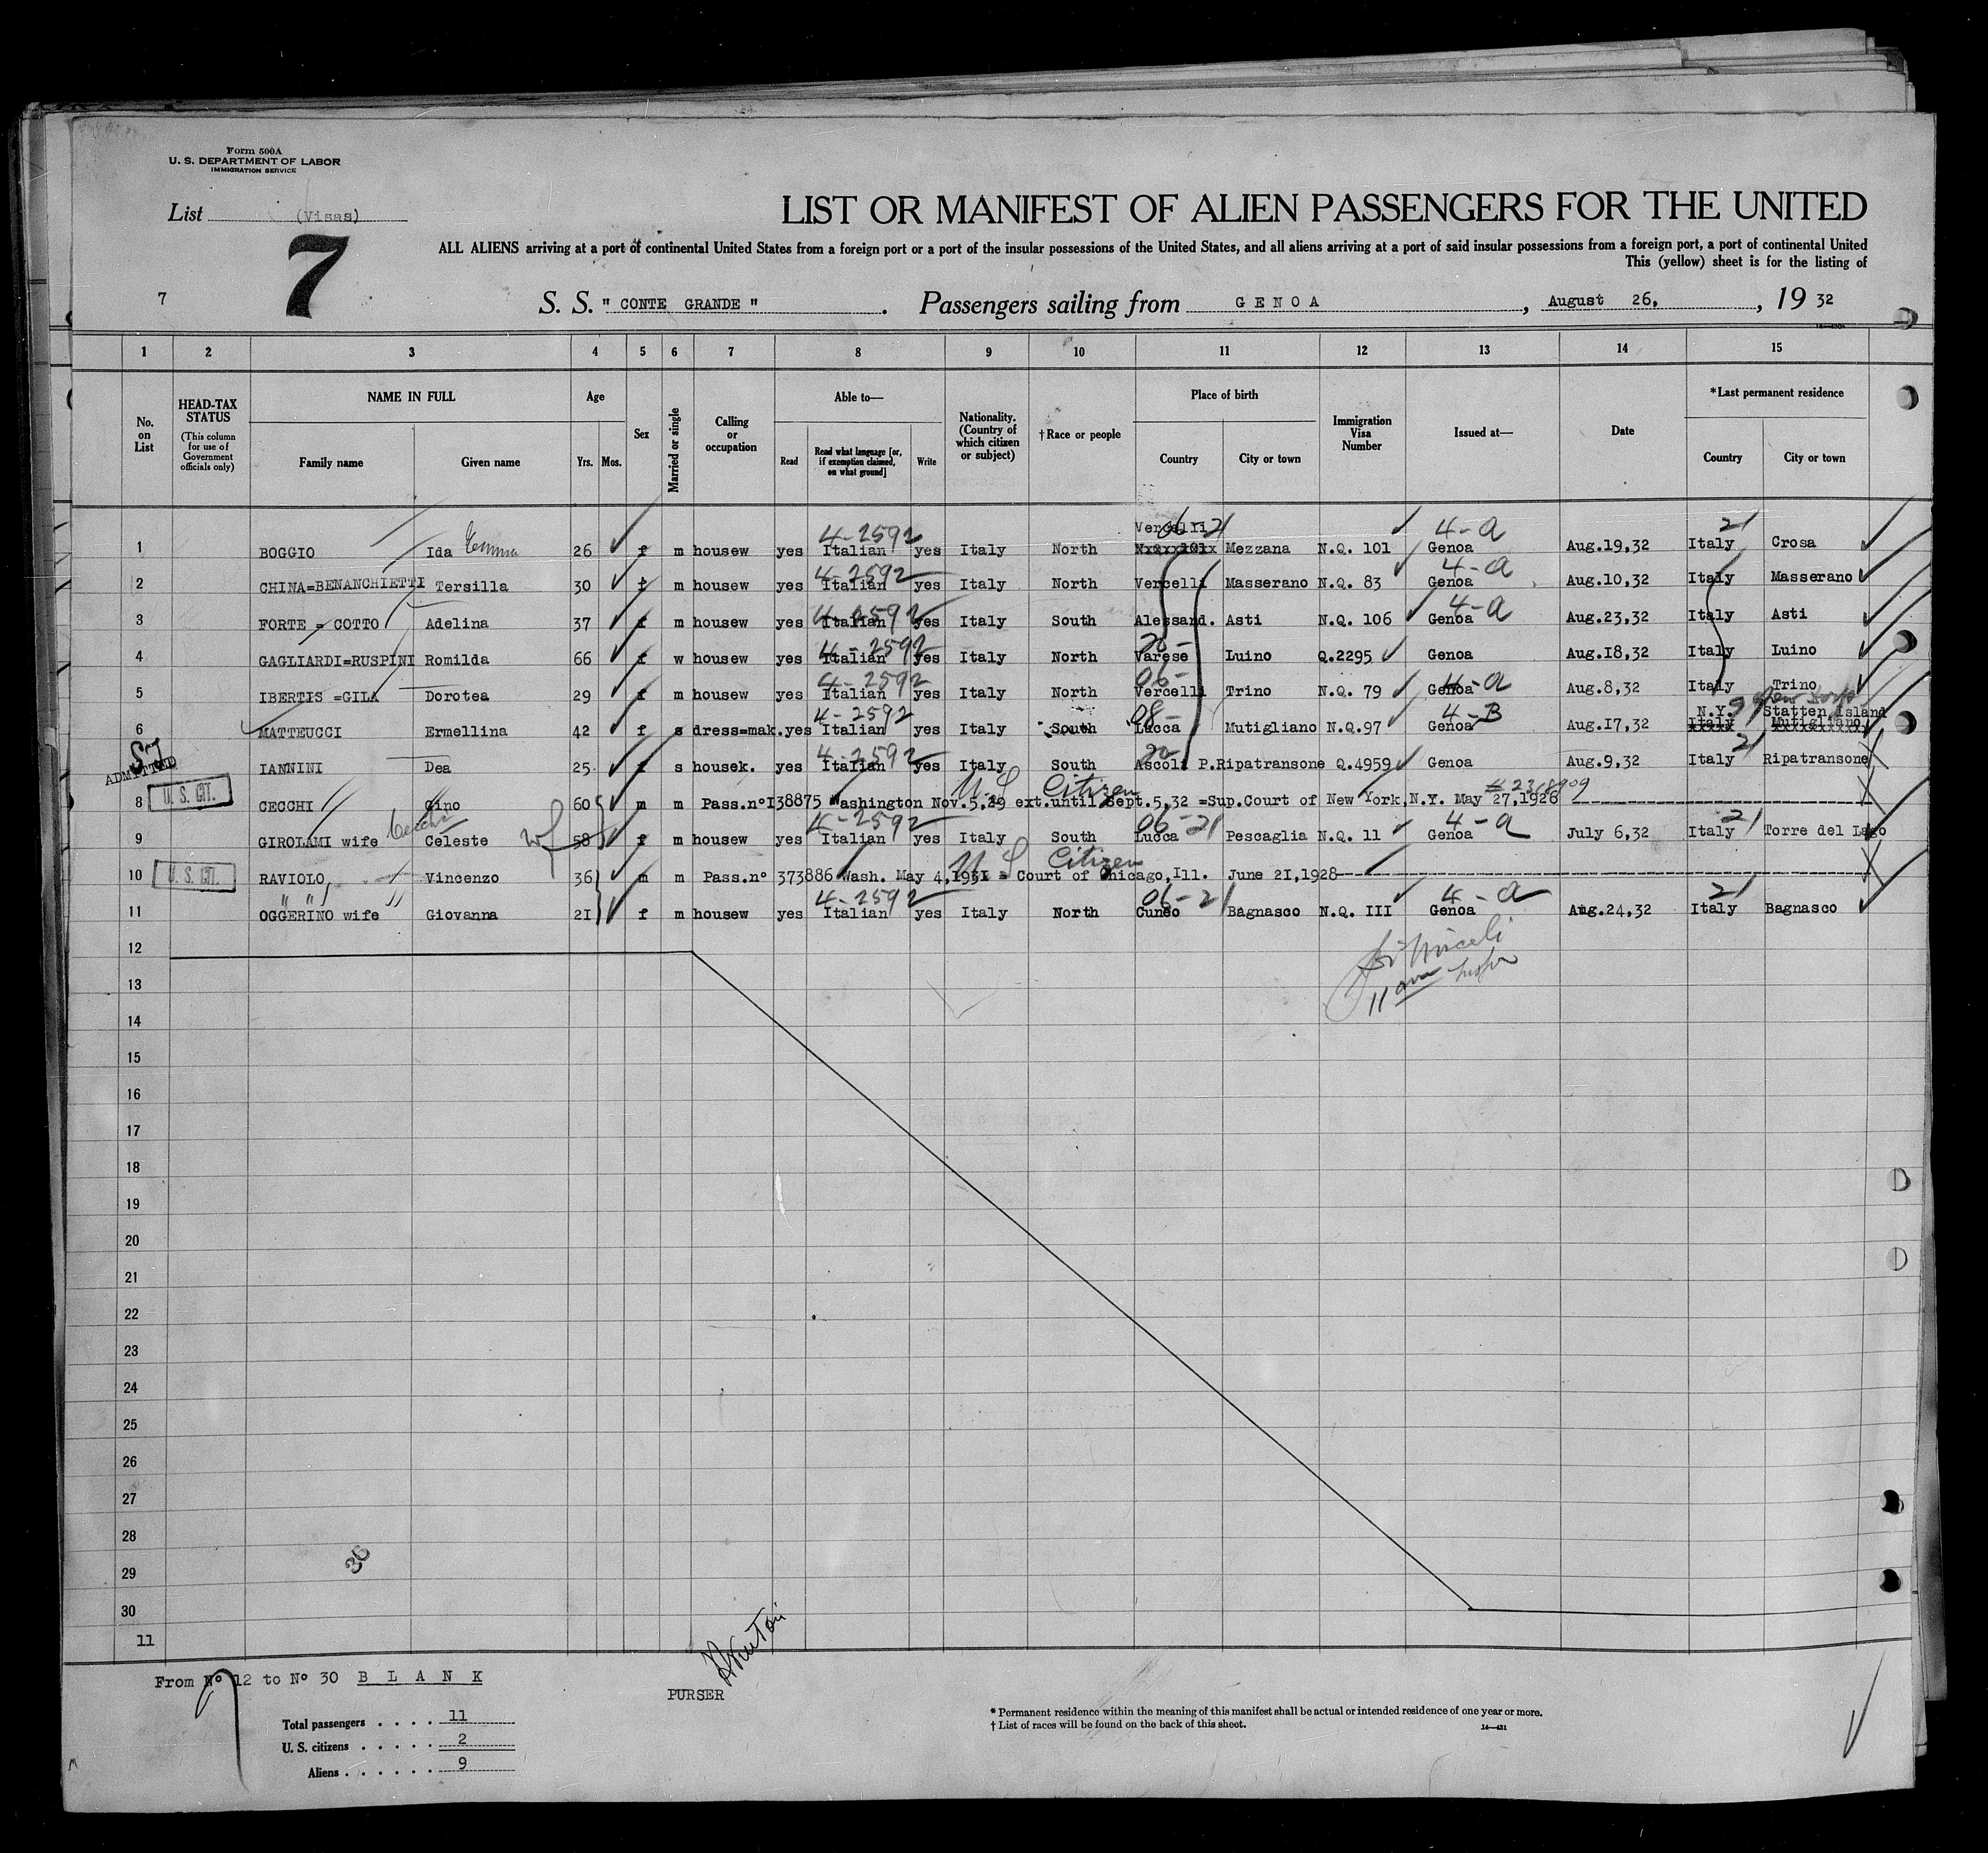 Form 500A
U. S. DEPARTMENT OF LABOR
IMMIGRATION SERVICE
List (Visas)
7
LIST OR MANIFEST OF ALIEN PASSENGERS FOR THE UNITED
ALL ALIENS arriving at a port of continental United States from a foreign port or a port of the insular possessions of the United States, and all aliens arriving at a port of said insular possessions from a foreign port, a port of continental United
This (yellow) sheet is for the listing of
7 S. S. " CONTE GRANDE " . Passengers sailing from GENOA , August 26, , 19 32
1 2 3 4 5 6 7 8 9 10 11 12 13 14 15
No. on List
HEAD-TAX STATUS (This column for use of Government officials only)
NAME IN FULL Family name Given name
Age Yrs. Mos.
Sex
Married or single
Calling or occupation
Able to— Read Read what language [or, if exemption claimed, on what ground] Write
Nationality. (Country of which citizen or subject)
† Race or people
Place of birth Country City or town
Immigration Visa Number
Issued at—
Date
*Last permanent residence Country City or town
4-2592 Vercelli 06-21 4-a 21
1 BOGGIO Ida Emma 26 f m housew yes Italian yes Italy North Mezzana N.Q. 101 Genoa Aug.19,32 Italy Crosa
4-2592 4-a
2 CHINA=BENANCHIETTI Tersilla 30 f m housew yes Italian yes Italy North Vercelli Masserano N.Q. 83 Genoa Aug.10,32 Italy Masserano
4-2592 4-a
3 FORTE = COTTO Adelina 37 f m housew yes Italian yes Italy South Alessand. Asti N.Q. 106 Genoa Aug.23,32 Italy Asti
4-2592 20-
4 GAGLIARDI=RUSPINI Romilda 66 f w housew yes Italian yes Italy North Varese Luino Q.2295 Genoa Aug.I8,32 Italy Luino
4-2592 06- 4-a
5 IBERTIS =GILA Dorotea 29 f m housew yes Italian yes Italy North Vercelli Trino N.Q. 79 Genoa Aug.8,32 Italy Trino
4-2592 08- 4-B N.Y. Statten Island
6 MATTEUCCI Ermellina 42 f s dress=mak.yes Italian yes Italy South Lucca Mutigliano N.Q.97 Genoa Aug.I7,32 Italy Mutigliano
SI ADMITTED 4-2592 20- 21
IANNINI Dea 25 f s housek. yes Italian yes Italy South Ascoli P.Ripatransone Q.4959 Genoa Aug.9,32 Italy Ripatransone
U. S. CIT. U S Citizen # 2368909
8 CECCHI Gino 60 m m Pass.n°I38875 Washington Nov.5,29 ext.until Sept.5,32 =Sup.Court of New York,N.Y. May 27,1926
Cecchi wf 4-2592 06-21 4-a 21
9 GIROLAMI wife Celeste 58 f m housew yes Italian yes Italy South Lucca Pescaglia N.Q. 11 Genoa July 6,32 Italy Torre del Lago
U. S. CIT. U S Citizen
10 RAVIOLO Vincenzo 36 m m Pass.n° 373886 Wash. May 4,193I = Court of Chicago,Ill. June 2I,1928
" " 4-2592 06-21 4-a 21
11 OGGERINO wife Giovanna 2I f m housew yes Italian yes Italy North Cuneo Bagnasco N.Q. III Genoa Aug.24,32 Italy Bagnasco
12
13
14
15
16
17
18
19
20
21
22
23
24
25
26
27
28
29
30
36
11
From N° 12 to N° 30 B L A N K
PURSER
Total passengers . . . . 11
U. S. citizens . . . . . 2
Aliens . . . . . . 9
* Permanent residence within the meaning of this manifest shall be actual or intended residence of one year or more.
† List of races will be found on the back of this sheet.
14—431